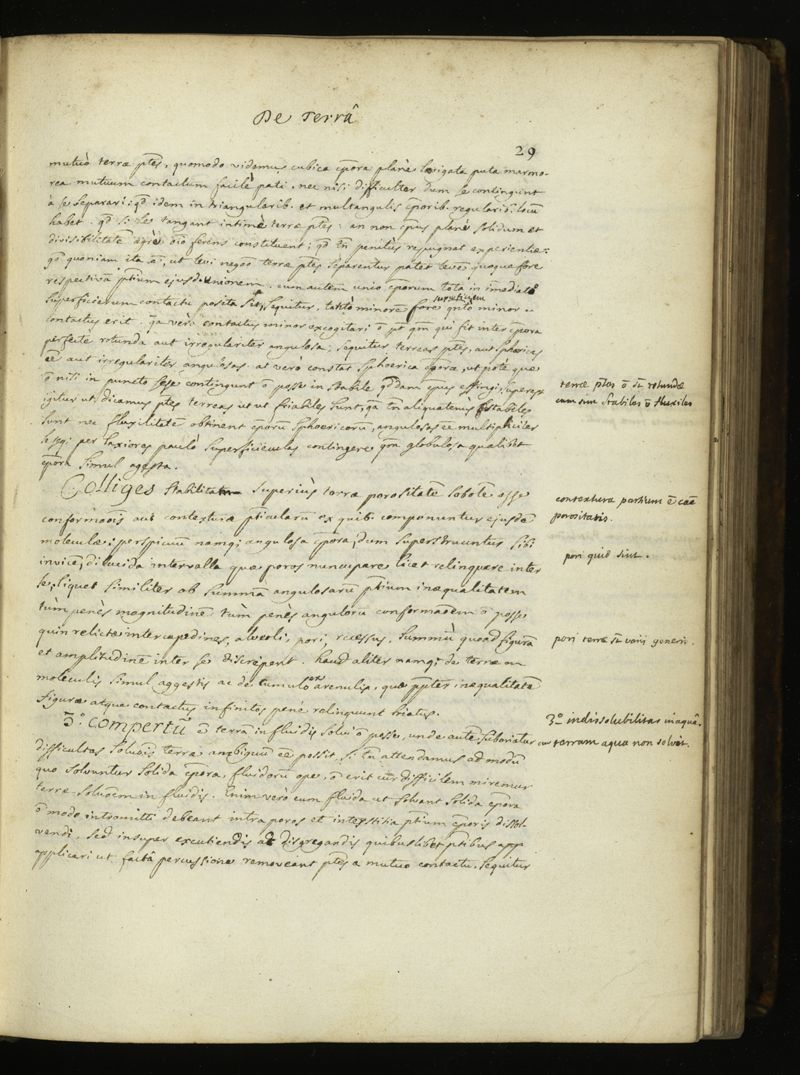 De Terrâ
29
mutuò terræ ptes, quomodo videmus cubica cpora planè lævigata puta marmo-
rea mutuum contactum facilè pati, nec nisi difficulter dum se contingunt
à se separari: qd idem in triangularib. et multangulis cporib. regularib. locū
habet. qd si se tangant intimè terræ ptes: an non cpus planè solidum et
divisibilitatē ægrè ferens constituent; qd tn penitus repugnat experientiæ:
qd quoniam ita ē, ut levi negoō terræ ptes separentur patet leve quoque fore
respectivā ptium ejusdē unionem, cum autem unio cporum tota in imediato
superficierum contactu posita sit, sequitur, tantò minorē fore quātò minor
contactus erit. qa verò contactus minor excogitari ō pt qm qui fit inter cpora
perfectè rotunda aut irregulariter angulosa; sequitur terreas ptes, aut sphæricas
ēē aut irregulariter angulosas. at verò constat sphærica cpora, ut potè quæ
ō nisi in puncto sese contingunt ō posse in stabile qddam cpus effingi, superest
igitur ut, dicamus ptes terreas ut ut friabiles sunt, qa tn aliquatenùs stabiles
sunt nec fluxilitatē obtinent cporū sphæricorū, angulosas ēē multipliciter
seqi. per laxiores paulò superficieculas contingere qm globulosa quælibet
cpora simul agesta.
Colliges superius terræ porositatē sobolē esse
conformaōis aut contexturæ pticularū ex quib. componuntur ejusdē
moleculæ: perspicuum namq; angulosa cpora, dum superstruuntur sibi
invicē, dilucida intervalla quæ poros nuncupare licet relinquere inter
se, liquet similiter ob summā angulosarū ptium inæqualitatem
tùm penès magnitudinē tùm penès angulorū conformaōem ō posse
quin relictæ intercapedines, alveoli, pori, recessus, summè quoad figurā
et amplitudinē inter se discrepent. haud aliter namq; de terræ
moleculis simul aggestis ac de tumulo ex arenulis, quæ ppter inæqualitatē
figuræ atque contactus infinitos penè relinquunt hiatus.
3º. compertū ē terrā in fluidis solvi ō posse, unde autē suboriatur
difficultas solubis terræ ambiguū ēē possit, si tn attendamus ad modū
quo solvuntur solida cpora, fluidorū ope, ō erit cur difficilem miremur
terræ soluōem in fluidis. Enim verò cum fluida ut solvant solida cpora
ō modò intromitti debeant intra poros et interstitia ptium cporis dissol-
vendi, sed insuper excutiendis ac disgregandis quibuslibet ptibus app
applicari ut factâ percussione removeant ptes à mutuo contactu, sequitur
terræ ptes ō st rotundæ
cum sint stabiles ō fluxiles
contextura partium ē caā
porositatis.
pori quid sint.
pori terræ st varii generis.
3º indissolubilitas in aquâ.
cur terram aqua non solvit.